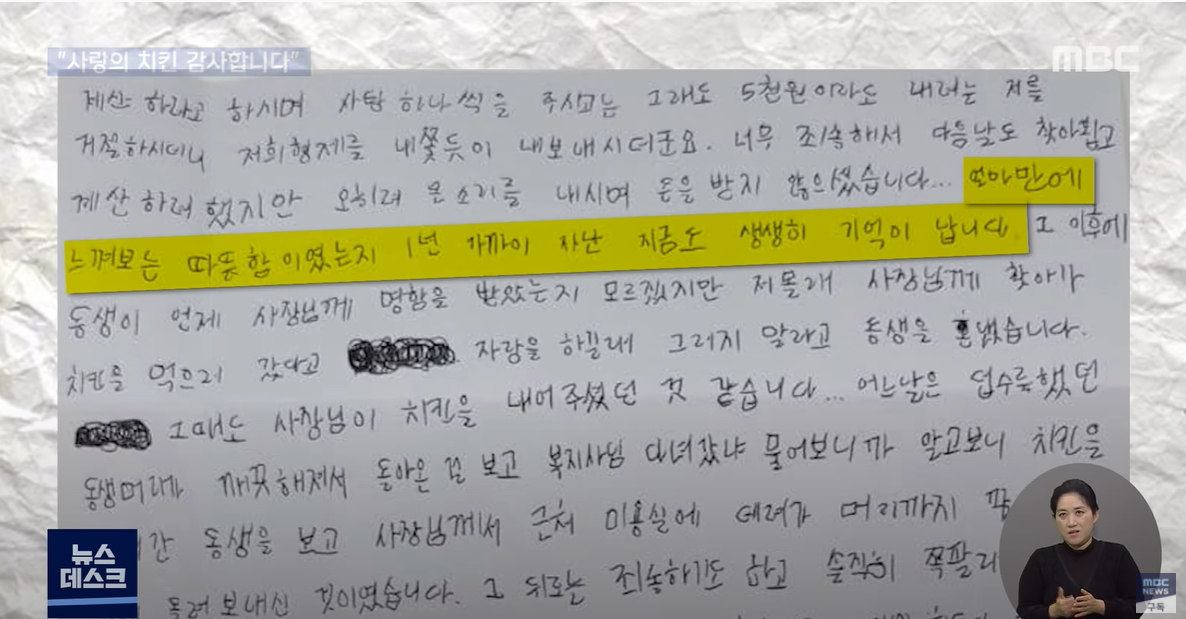 "사랑의 치킨 감사합니다"
MBC
계산 하라고 하시며 사탕 하나씩을 주시고는 그래도 5천원이라도 내려는 저를
거절하시더니 저희형제를 내쫓듯이 내보내시더군요. 너무 죄송해서 다음날도 찾아뵙고
계산하려 했지만 오히려 큰소리를 내시며 돈을 받지 않으셨습니다... 얼마만에
느껴보는 따뜻함이였는지 1년 가까이 지난 지금도 생생히 기억이 납니다. 그 이후에
동생이 언제 사장님께 명함을 받았는지 모르겠지만 저몰래 사장님께 찾아가
치킨을 먹으러 갔다고 자랑을 하길래 그러지 말라고 동생을 혼냈습니다.
그때도 사장님이 치킨을 내어주셨던 것 같습니다... 어느날은 덥수룩했던
동생머리가 깨끗해져서 돌아온 걸 보고 복지사님 다녀갔냐 물어보니까 알고보니 치킨을
간 동생을 보고 사장님께서 근처 미용실에 데려가 머리까지
돌려보내신 것이였습니다. 그 뒤로는 죄송하기도 하고 솔직히 쪽팔리
뉴스
데스크
MBC
NEWS
구독